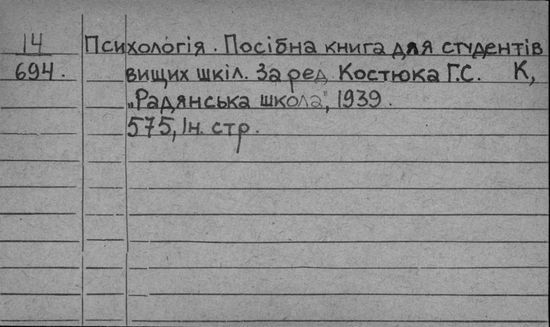 14 Психологія. Посібна книга для студентів
694. вищих шкіл. За ред. Костюка Г.С. К,
„Радянська школа", 1939.
575, Ін. стр.